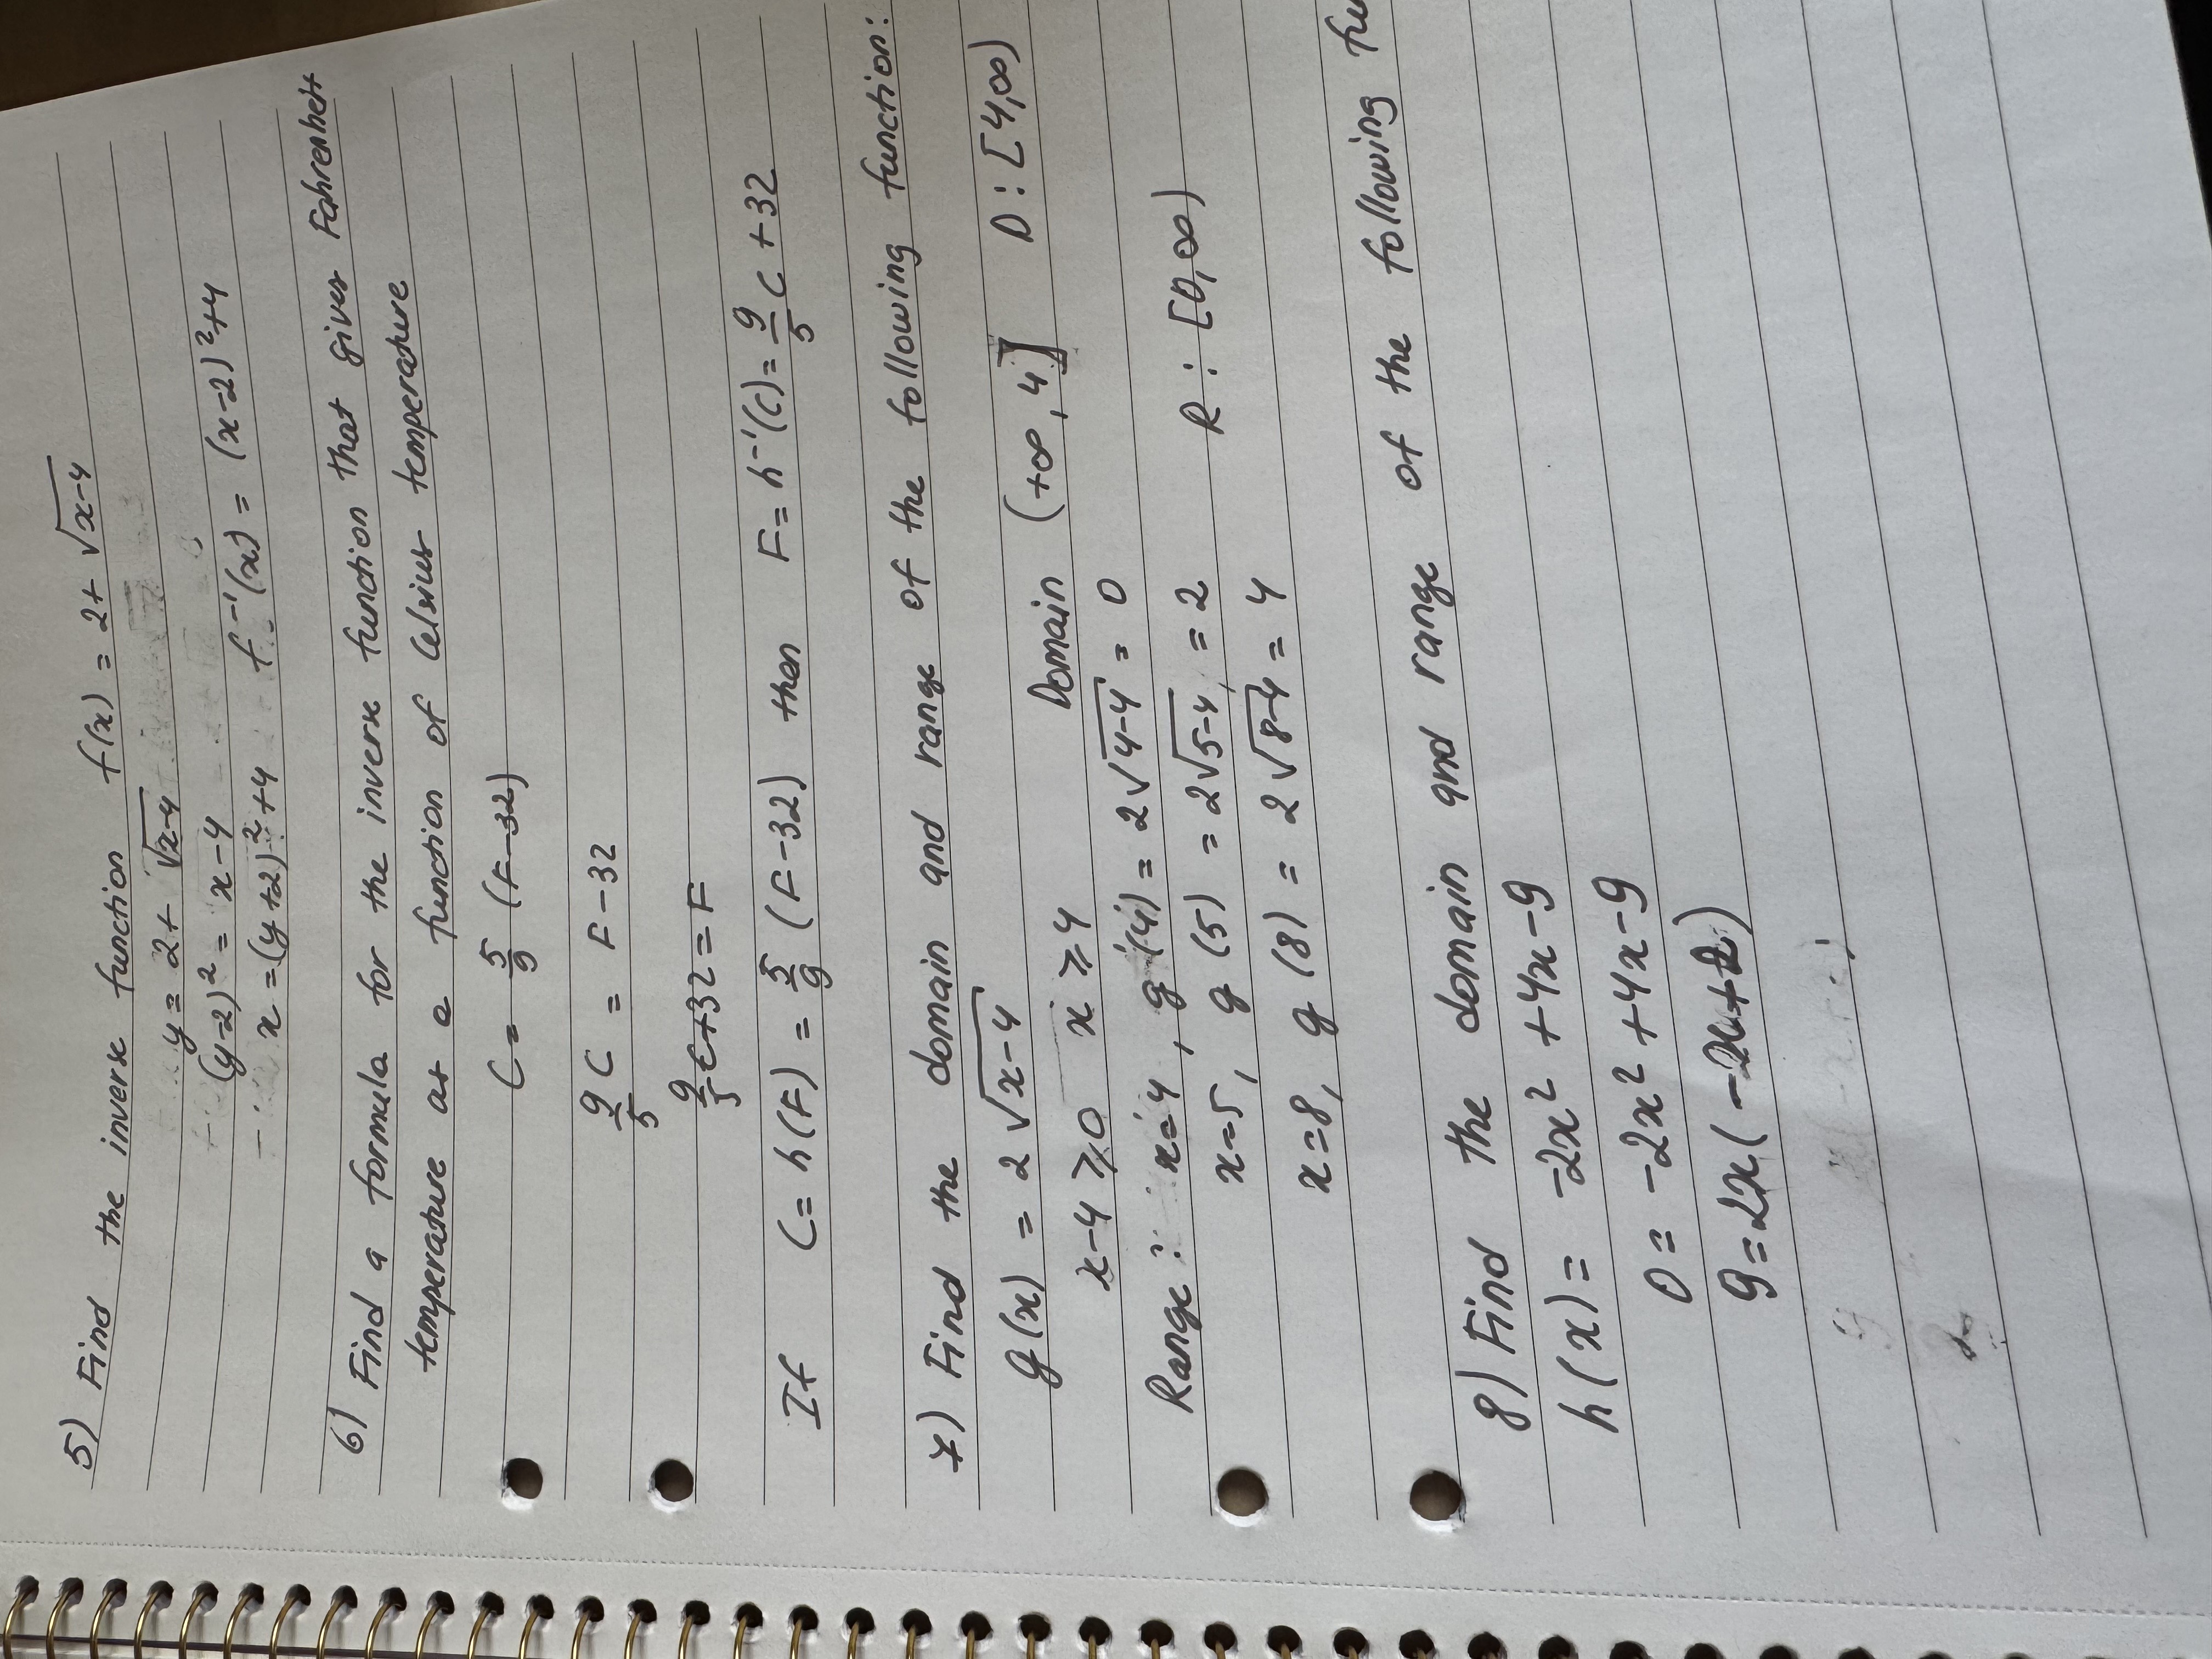 5) Find the inverse function f(x) = 2+ √x-4
y = 2+ √x-4
(y-2)² = x-4
x = (y+2)² +4 f⁻¹(x) = (x-2)²+4
6) Find a formula for the inverse function that gives Fahrenheit
temperature as a function of Celsius temperature
C = 5/9 (F-32)
9/5 C = F-32
9/5 C+32 = F
If C = h(F) = 5/9 (F-32) then F = h⁻¹(C) = 9/5 C +32
7) Find the domain and range of the following function:
g(x) = 2 √x-4
x-4 ⩾ 0 x ⩾ 4 Domain (+∞, 4] D : [4,∞)
Range : x=4 , g (4) = 2√4-4 = 0
x=5, g (5) = 2√5-4 = 2 R : [0,∞)
x=8, g (8) = 2√8-4 = 4
8) Find the domain and range of the following fu
h(x) = -2x² +4x-9
0 = -2x² +4x-9
9=2x(